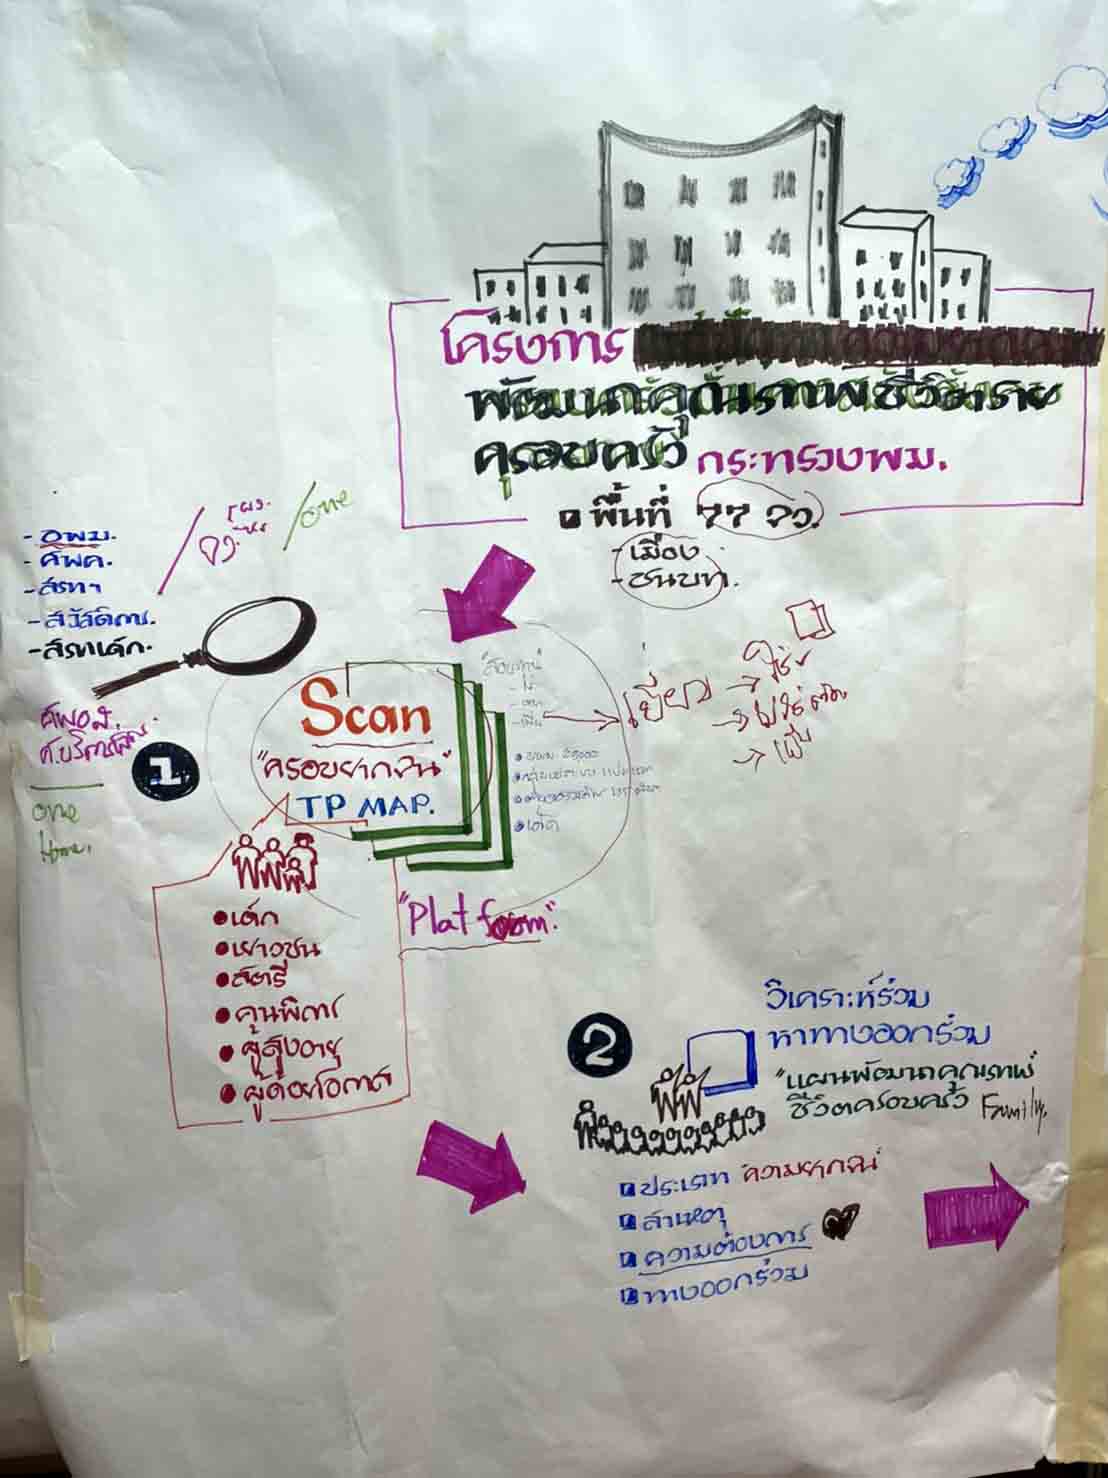 โครงการ
พัฒนาคุณภาพชีวิตราย
ครอบครัว กระทรวงพม.
พื้นที่ 77 จว.
- เมือง
- ชนบท.
/one
- อพม.
- ศพค.
- สวัสดิการ.
- สภาเด็ก.
one
Home.
1
Scan
"ครอบยากจน"
TP MAP.
"Platform".
เยี่ยม
→ ใช่ ✓
• เด็ก
• เด็ก
• เยาวชน
• สตรี
• คนพิการ
• ผู้สูงอายุ
• ผู้ด้อยโอกาส
2
วิเคราะห์ร่วม
หาทางออกร่วม
"แผนพัฒนาคุณภาพ
ชีวิตครอบครัว" Family.
ประเภท "ความยากจน"
สาเหตุ
ความต้องการ
ทางออกร่วม